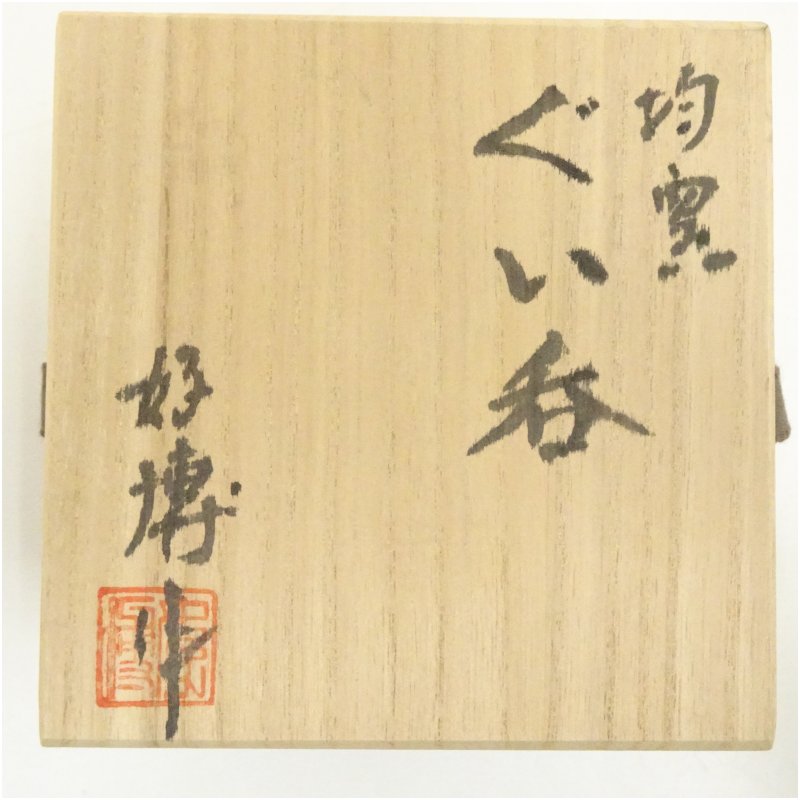 均窯
ぐい呑
好博作